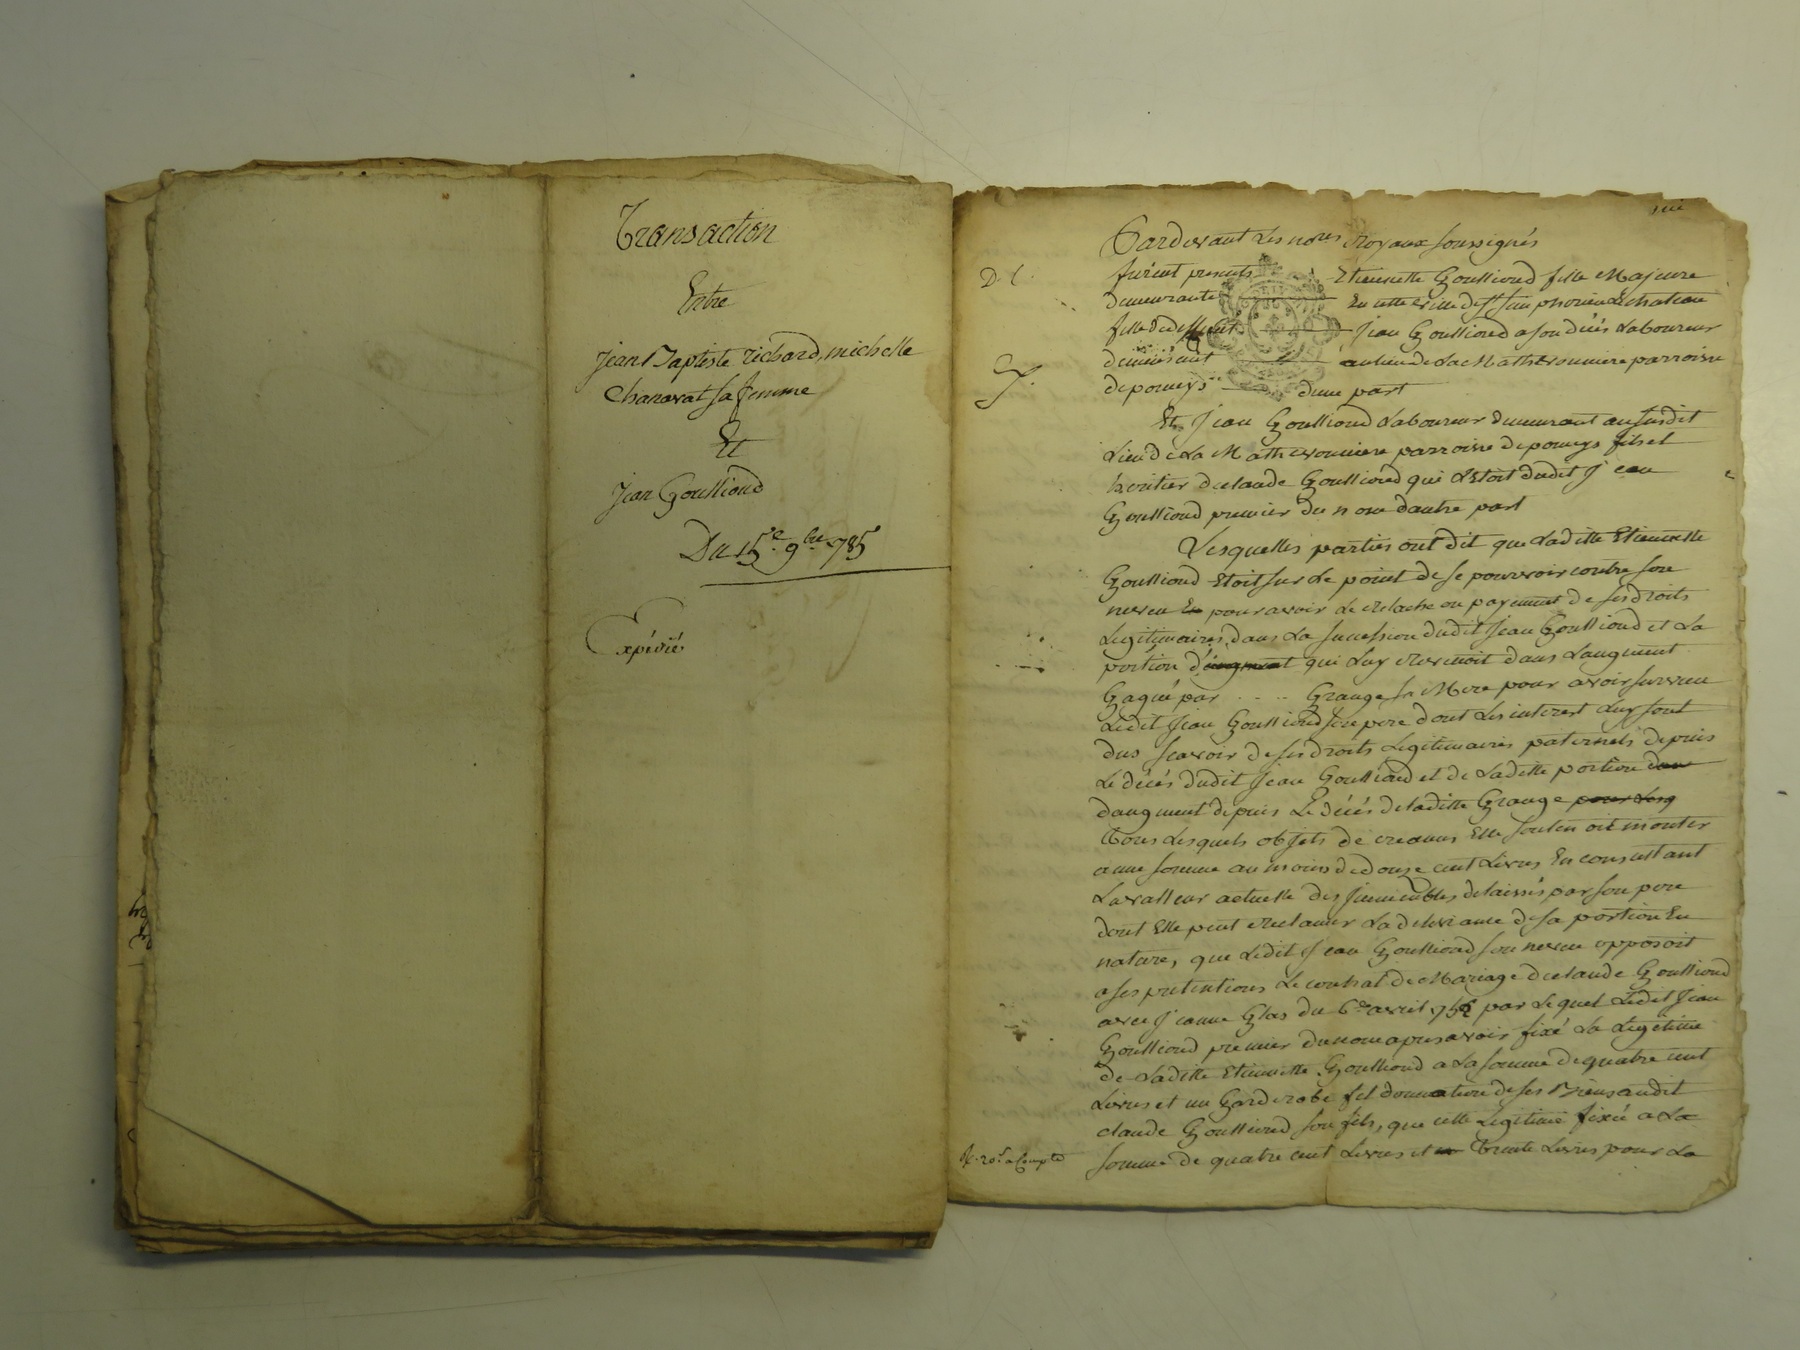 Transaction
Entre
Jean Baptiste Richard, michelle
Chanavat sa femme
Et
Jean Goullioud
Du 15e 9bre 785
Expédié
Pardevant Les nores Royaux soussignés
furent presents Etiennette Goullioud fille Majeure
demeurante En cette ville
fille de deffunt Jean Goullioud a son décés Laboureur
demeurant au lieu de La Mathevonniere parroisse
de pomeys dune part
Et Jean Goullioud Laboureur demeurant au susdit
Lieu de La Mathevonniere parroisse de pomeys fils et
heritier de claude Goullioud qui L'etoit dudit Jean
Goullioud premier du nom dautre part
Lesquelles parties ont dit que Laditte Etiennette
Goullioud Etoit sur Le point de se pourvoir contre son
neveu En pour avoir Le relache ou payement de ses droits
Legitimaires, dans La succession dudit Jean Goullioud et La
portion d'augment qui Luy revenoit dans Laugment
Gagné par .... Grange sa Mere pour avoir survecu
Ledit Jean Goullioud son pere dont Les interest Luy sont
dus scavoir de ses droits Legitimaires paternels depuis
Le décés dudit Jean Goullioud et de Laditte portion dau
daugment depuis Le décés de laditte Grange pour Lesq
Tous Lesquels objets de creances Elle soutenoit monter
a une somme au moins de douze cent Livres En consultant
La valleur actuelle des Jmmeubles delaissés par son pere
dont Elle peut reclamer La delivrance de sa portion En
nature, que Ledit Jean Goullioud son neveu opposoit
a ses pretentions Le contrat de Mariage de claude Goullioud
avec Jeanne Glas du 6e avril par Lequel Ledit Jean
Goullioud premier du nom apres avoir fixé La Legitime
de Laditte Etiennette Goullioud a La somme de quatre cent
Livres et un Garderobe fit donnation de ses Biens audit
claude Goullioud son fils, que cette Legitime fixée a La
R. 20s. a Compte
somme de quatre cent Livres et Trente Livres pour La